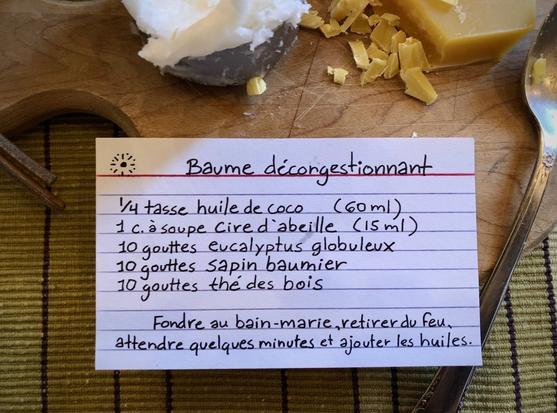 Baume décorgestionnant
1/4 tasse huile de coco (60 ml)
1 c. à soupe cire d'abeille (15 ml)
10 gouttes eucalyptus globuleux
10 gouttes sapin baumier
10 gouttes thé des bois
Fondre au bain-marie, retirer du feu,
attendre quelques minutes et ajouter les huiles.